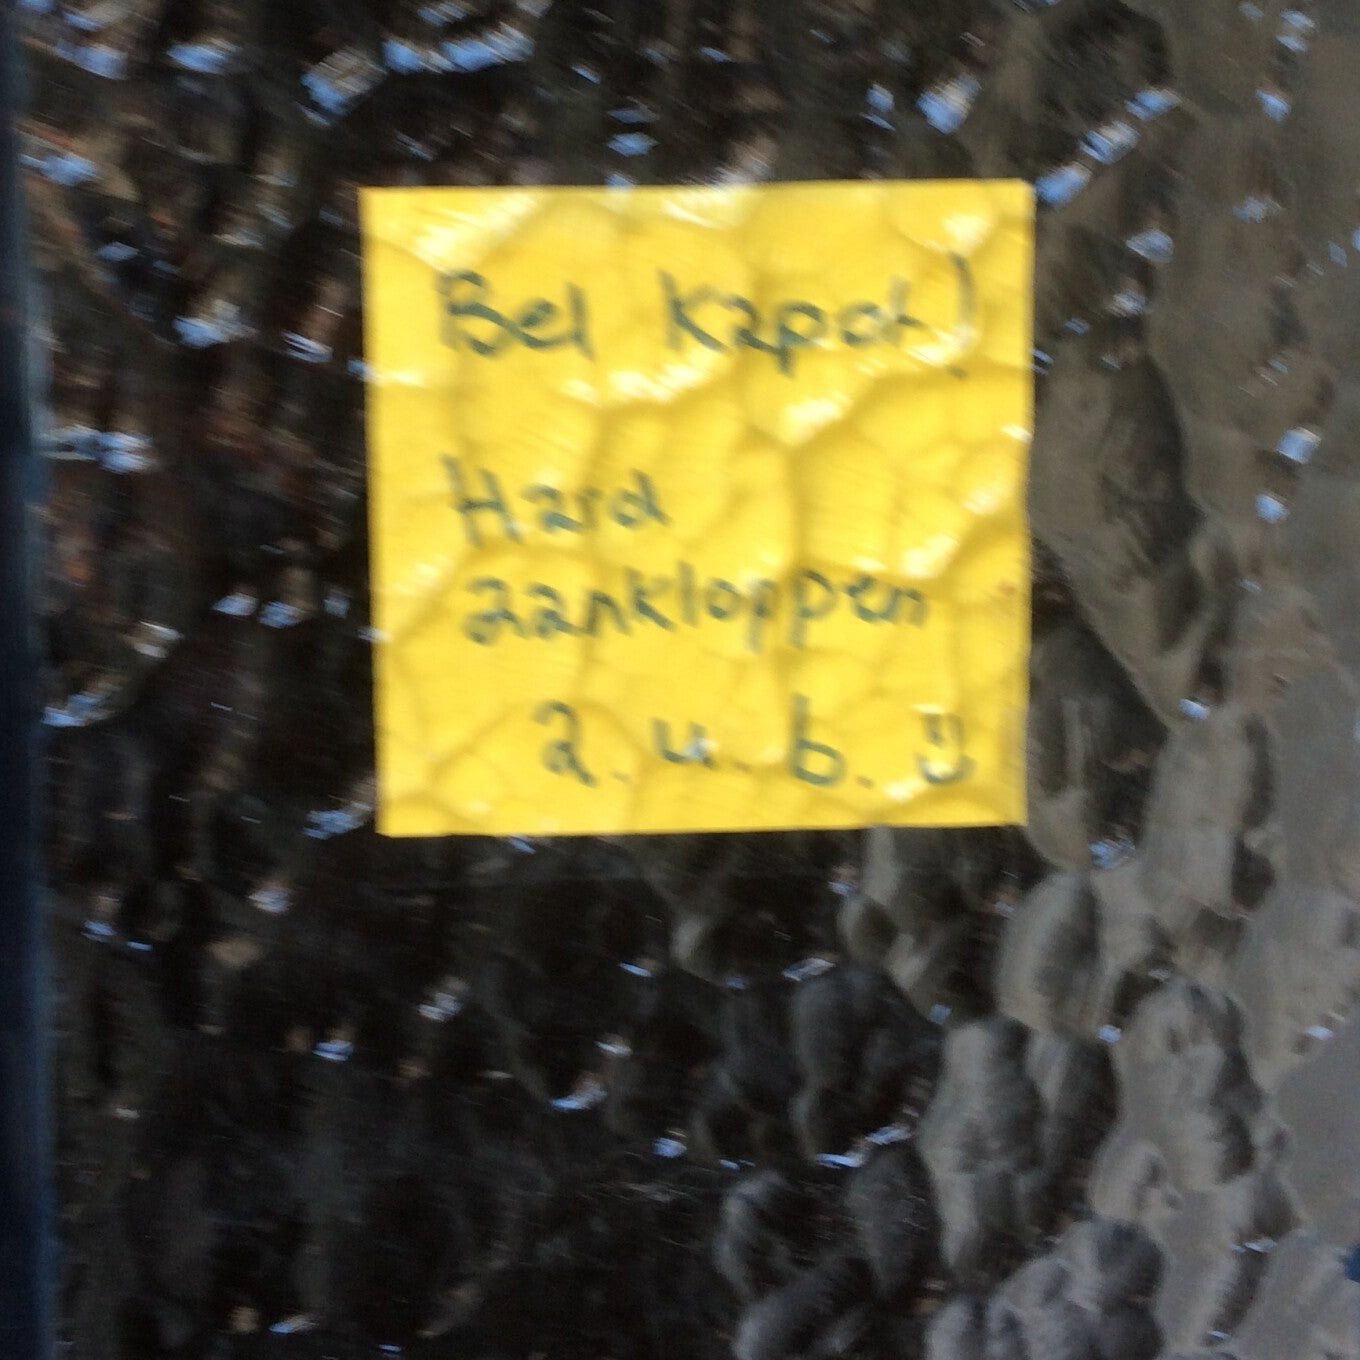 Bel kapot!
Hard
aankloppen
a.u.b. :)